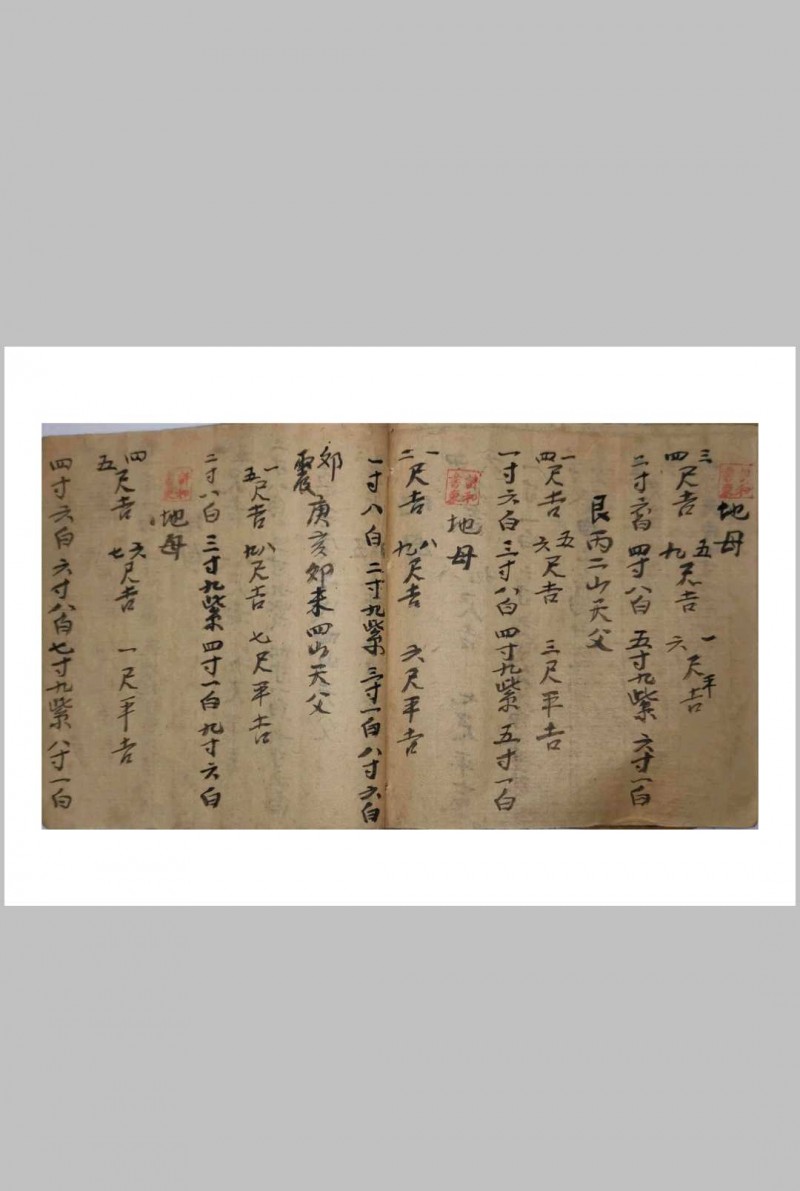 地母
三四尺吉 五九尺吉 一六尺平吉
二寸六白 四寸八白 五寸九紫 六寸一白
艮丙二山天父
一四尺吉 五六尺吉 三尺平吉
一寸六白 三寸八白 四寸九紫 五寸一白
地母
一二尺吉 八九尺吉 六尺平吉
一寸八白 二寸九紫 三寸一白 八寸六白
卯震庚亥卯未四山天父
一五尺吉 八九尺吉 七尺平吉
二寸八白 三寸九紫 四寸一白 九寸六白
地母
四五尺吉 六七尺吉 一尺平吉
四寸六白 六寸八白 七寸九紫 八寸一白